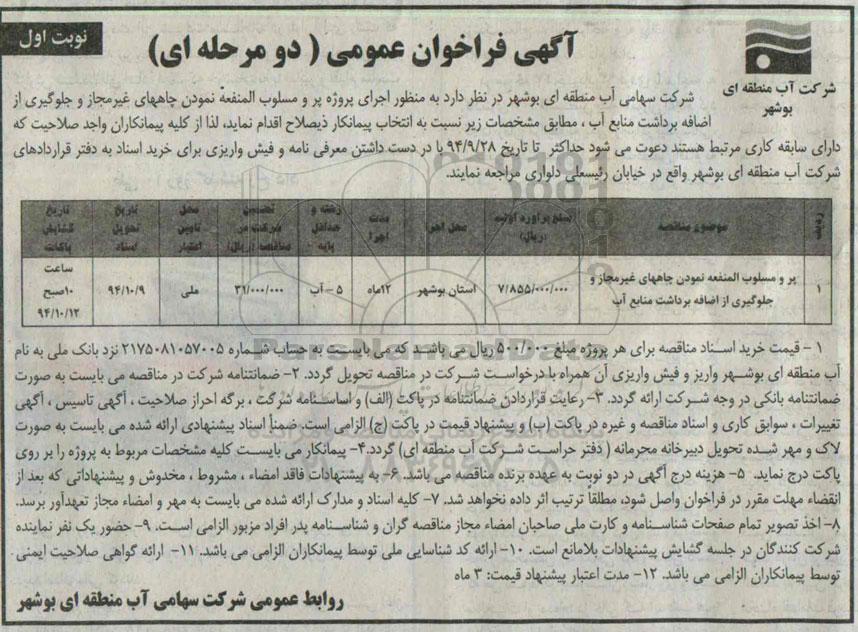 نوبت اول
آگهی فراخوان عمومی ( دو مرحله ای)
شرکت آب منطقه ای
بوشهر
شرکت سهامی آب منطقه ای بوشهر در نظر دارد به منظور اجرای پروژه پر و مسلوب المنفعه نمودن چاههای غیرمجاز و جلوگیری از
اضافه برداشت منابع آب ، مطابق مشخصات زیر نسبت به انتخاب پیمانکار ذیصلاح اقدام نماید، لذا از کلیه پیمانکاران واجد صلاحیت که
دارای سابقه کاری مرتبط هستند دعوت می شود حداکثر تا تاریخ ۹۴/۹/۲۸ با در دست داشتن معرفی نامه و فیش واریزی برای خرید اسناد به دفتر قراردادهای
شرکت آب منطقه ای بوشهر واقع در خیابان رئیسعلی دلواری مراجعه نمایند.
ردیف موضوع مناقصه مبلغ برآورد اولیه (ریال) محل اجرا مدت اجرا رشته و حداقل پایه تضمین شرکت در مناقصه (ریال) محل تامین اعتبار تاریخ تحویل اسناد تاریخ گشایش پاکات
۱ پر و مسلوب المنفعه نمودن چاههای غیرمجاز و جلوگیری از اضافه برداشت منابع آب ۷/۸۵۵/۰۰۰/۰۰۰ استان بوشهر ۱۲ماه ۵ - آب ۳۱/۰۰۰/۰۰۰ ملی ۹۴/۱۰/۹ ساعت ۱۰صبح ۹۴/۱۰/۱۲
۱ - قیمت خرید اسناد مناقصه برای هر پروژه مبلغ ۵۰۰/۰۰۰ ریال می باشد که می بایست به حساب شماره ۲۱۷۵۰۸۱۰۵۷۰۰۵ نزد بانک ملی به نام
آب منطقه ای بوشهر واریز و فیش واریزی آن همراه با درخواست شرکت در مناقصه تحویل گردد. ۲- ضمانتنامه شرکت در مناقصه می بایست به صورت
ضمانتنامه بانکی در وجه شرکت ارائه گردد. ۳- رعایت قراردادن ضمانتنامه در پاکت (الف) و اساسنامه شرکت ، برگه احراز صلاحیت ، آگهی تاسیس ، آگهی
تغییرات ، سوابق کاری و اسناد مناقصه و غیره در پاکت (ب) و پیشنهاد قیمت در پاکت (ج) الزامی است. ضمناً اسناد پیشنهادی ارائه شده می بایست به صورت
لاک و مهر شده تحویل دبیرخانه محرمانه ( دفتر حراست شرکت آب منطقه ای) گردد.۴- پیمانکار می بایست کلیه مشخصات مربوط به پروژه را بر روی
پاکت درج نماید. ۵- هزینه درج آگهی در دو نوبت به عهده برنده مناقصه می باشد. ۶- به پیشنهادات فاقد امضاء ، مشروط ، مخدوش و پیشنهاداتی که بعد از
انقضاء مهلت مقرر در فراخوان واصل شود، مطلقا ترتیب اثر داده نخواهد شد. ۷- کلیه اسناد و مدارک ارائه شده می بایست به مهر و امضاء مجاز تعهدآور برسد.
۸- اخذ تصویر تمام صفحات شناسنامه و کارت ملی صاحبان امضاء مجاز مناقصه گران و شناسنامه پدر افراد مزبور الزامی است. ۹- حضور یک نفر نماینده
شرکت کنندگان در جلسه گشایش پیشنهادات بلامانع است. ۱۰- ارائه کد شناسایی ملی توسط پیمانکاران الزامی می باشد. ۱۱- ارائه گواهی صلاحیت ایمنی
توسط پیمانکاران الزامی می باشد. ۱۲- مدت اعتبار پیشنهاد قیمت: ۳ ماه
روابط عمومی شرکت سهامی آب منطقه ای بوشهر
ParsNamadData